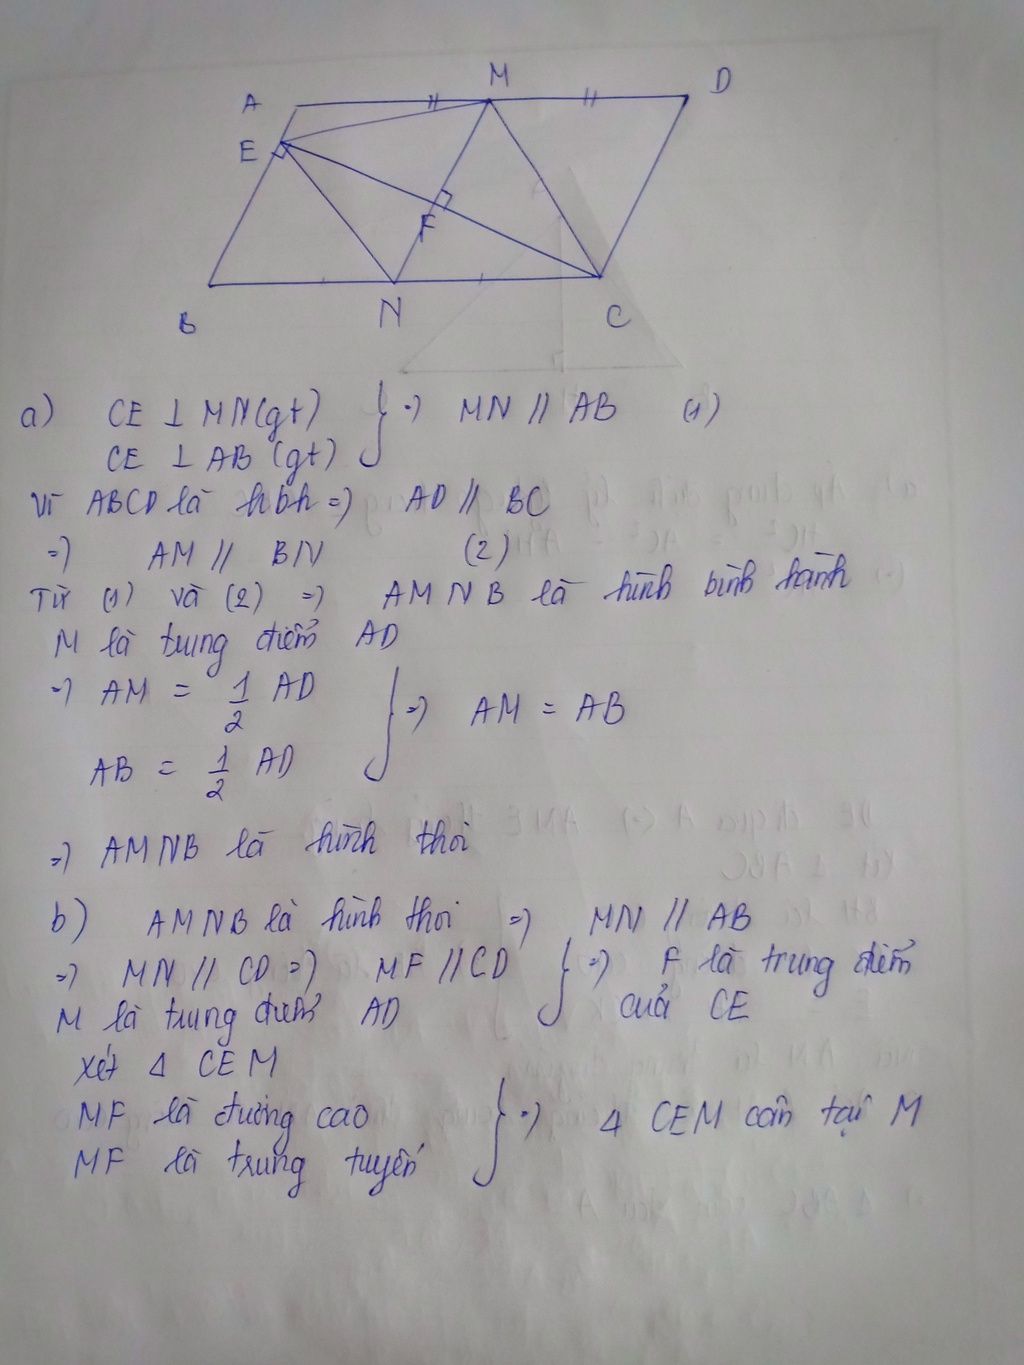 A M D
E
F
B N C
a) CE ⊥ MN (gt) } => MN // AB (1)
CE ⊥ AB (gt)
Vì ABCD là hbh => AD // BC
=> AM // BN (2)
Từ (1) và (2) => AMNB là hình bình hành
M là trung điểm AD
=> AM = 1/2 AD } => AM = AB
AB = 1/2 AD
=> AMNB là hình thoi
b) AMNB là hình thoi => MN // AB
=> MN // CD => MF // CD } => F là trung điểm
M là trung điểm AD của CE
Xét Δ CEM
MF là đường cao } => Δ CEM cân tại M
MF là trung tuyến